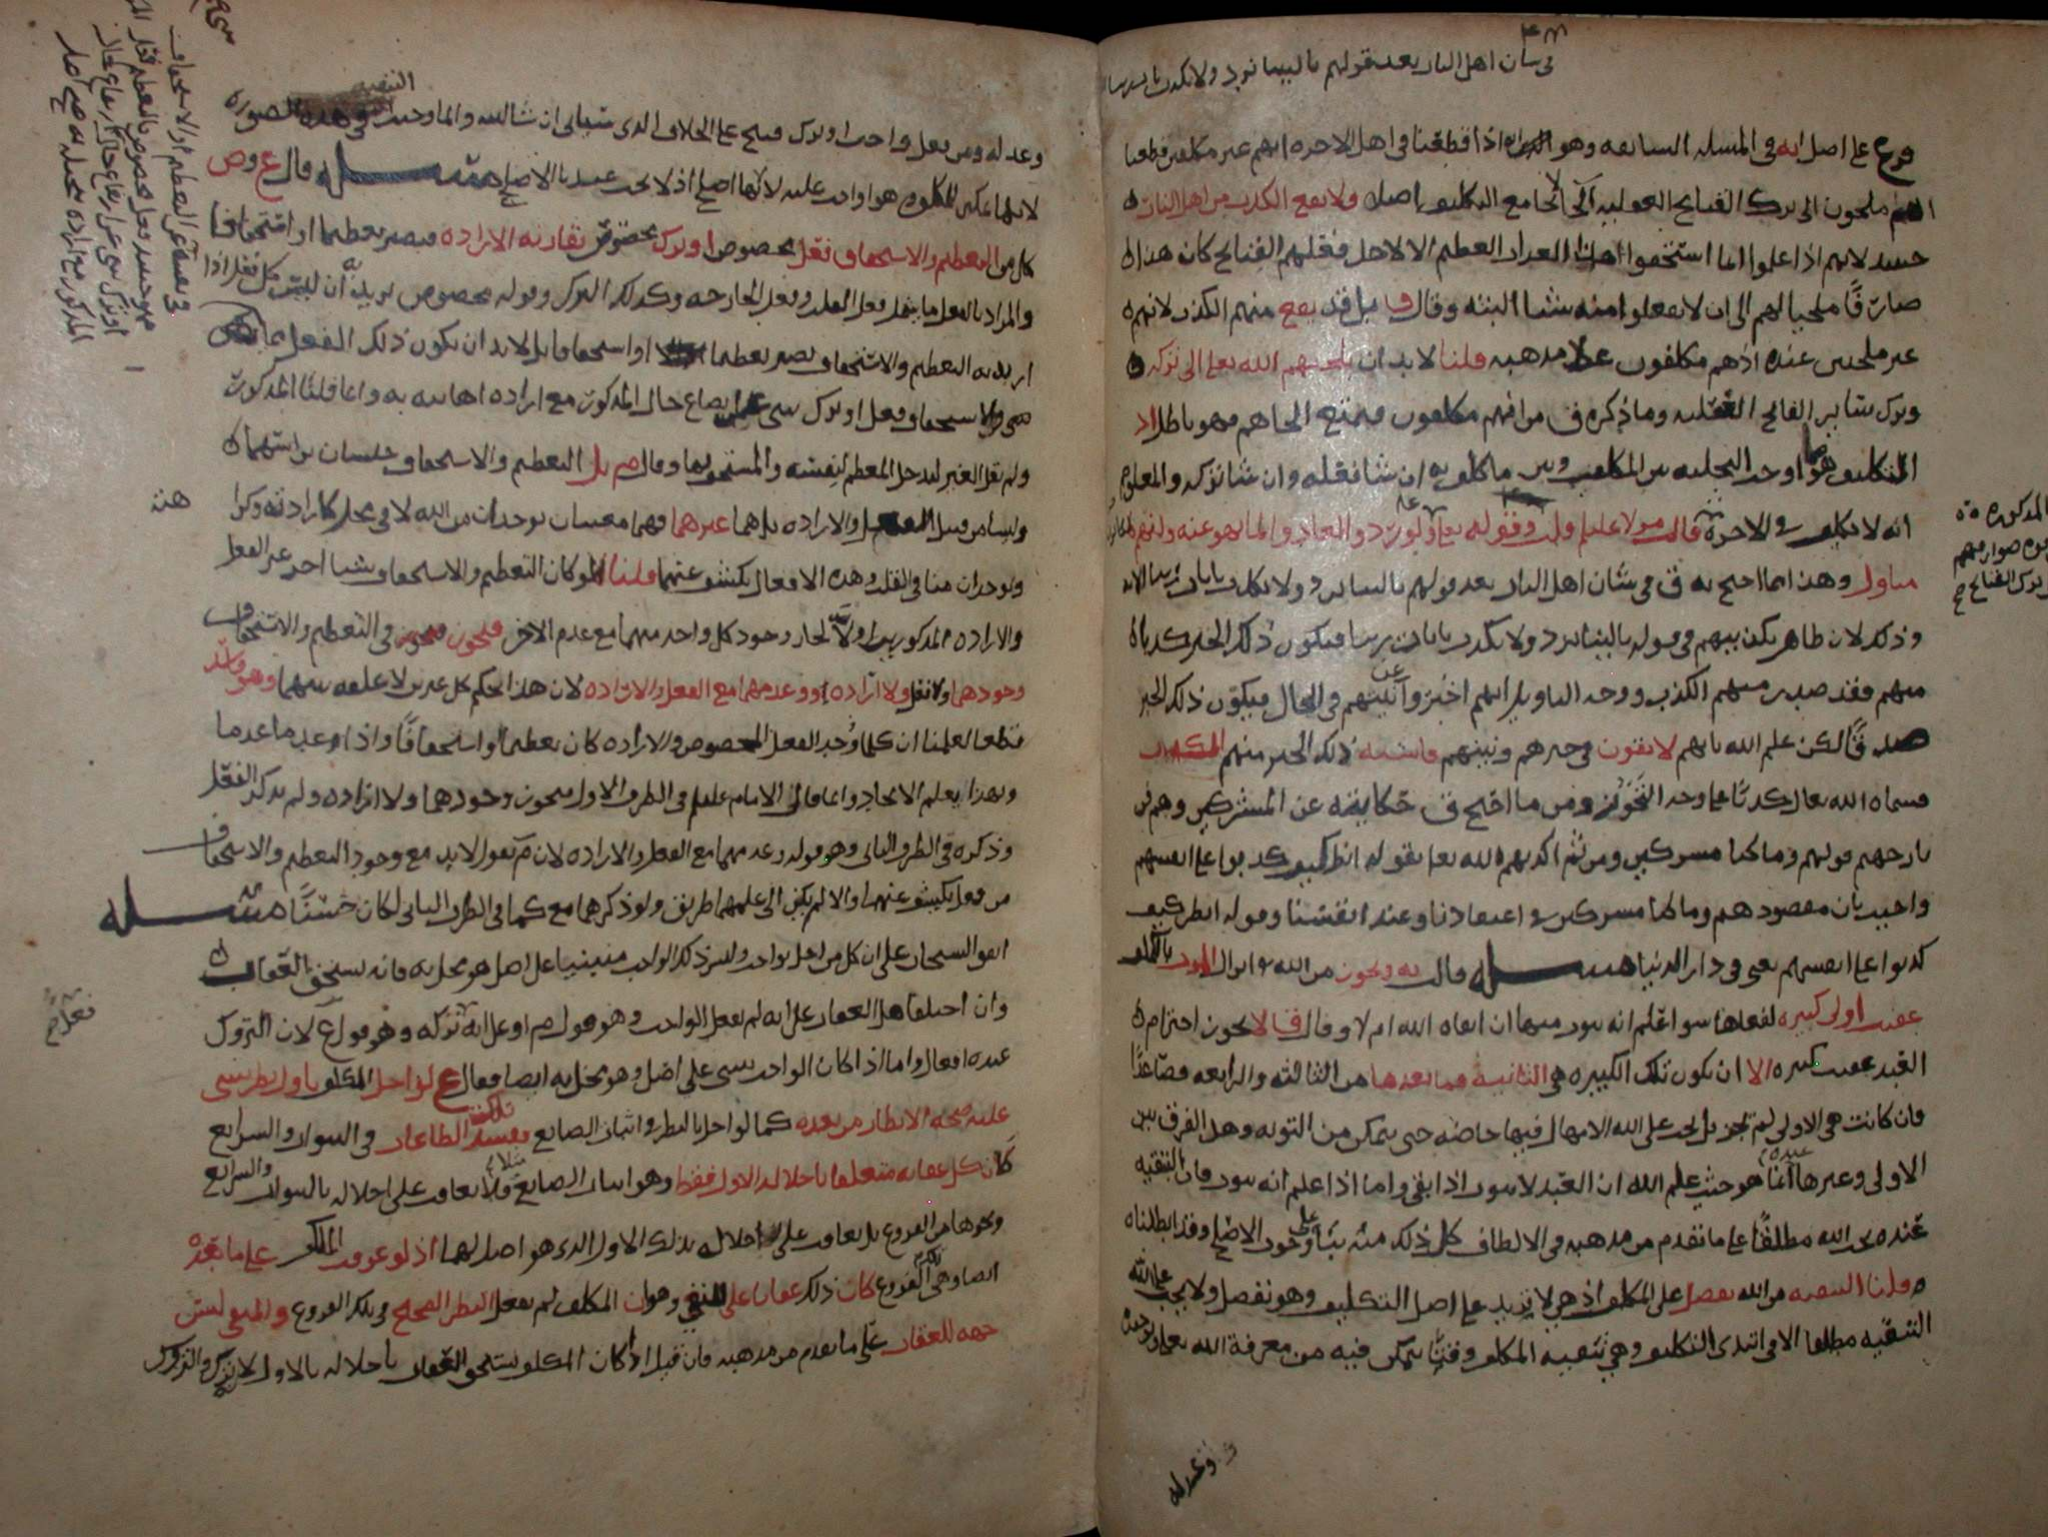 في شان اهل النار بعد قولهم يا ليتنا نرد ولا نكذب بايات ربنا
فرع على اصل ابه في المسله السابقه وهو اذا قطعنا في اهل الاخره انهم غير مكلفين قطعنا
انهم ملجون الى ترك القبائح العقليه اذ لا الجا مع التكليف اصلا ولا يقع الكذب من اهل النار
حينيد لانهم اذا علموا انما استحقوا العذاب العظيم الا لاجل فعلهم القبائح كان هذا
صارفًا ملجيا لهم الى ان لا يفعلوا منه شيا البته وقال بل قد يقع منهم الكذب لانهم
غير ملجين عنده اذ هم مكلفون على مذهبه قلنا لا بد ان يلجيهم الله تعالى الى تركه
وترك سائر القبائح العقليه وما ذكره ق من انهم مكلفون فيمتنع الجاهم فهو باطل اذ
التكليف هو التخليه بين المكلف وبين ما كلف به ان شا فعله وان شا تركه والمعلوم
انه لا تكليف في الاخرة قال مولانا عليلم وقوله تعالى ولو ردوا لعادوا لما نهوا عنه وانهم لكاذبون
متاول وهذا مما احتج به ق في شان اهل النار بعد قولهم يا ليتنا نرد ولا نكذب بايات ربنا الايه
وذلك لان ظاهر تكذيبهم في قوله يا ليتنا نرد ولا نكذب بايات ربنا فيكون ذلك الخبر كذبا
منهم فقد صدر منهم الكذب ووجه التاويل انهم اخبروا عن نيتهم في الحال فيكون ذلك الخبر
صدقًا لكن علم الله بانهم لا يفون في خبرهم ونيتهم فاشبه ذلك الخبر منهم الكذب
فسماه الله تعالى كذبًا مجازا وجه التجوز ومن ما احتج ق حكايته عن المشركين وهم في
نار جهنم قولهم وما كنا مشركين ومن ثم اكذبهم الله تعالى بقوله انظر كيف كذبوا على انفسهم
واجيب بان مقصودهم وما كنا مشركين في اعتقادنا وعند انفسنا وقوله انظر كيف
كذبوا على انفسهم يعني في دار الدنيا مسله قال به ويجوز من الله انزال الموت بالمكلف
عقيب اولى كبيره لفعلها سوا علم انه يتوب منها ان ابقاه الله ام لا وقال ق لا يجوز اخترام
العبد عقيب كبيره الا ان يكون تلك الكبيره هي الثانية فما بعدها من الثالثه والرابعه فصاعدًا
فان كانت هي الاولى لم تجز بل يجب على الله الامهال فيها خاصه حتى يتمكن من التوبه وهذا الفرق بين
الاولى وغيرها عنده انما هو حيث علم الله ان العبد لا يتوب اذا بقي واما اذا علم انه يتوب فان التبقيه
عنده يجب الله مطلقًا على ما تقدم من مذهبه في الالطاف كل ذلك منه بنا على وجوب الاصلح وقد ابطلناه
قلنا التبقيه من الله تفضل على المكلف اذ هي لا تزيد على اصل التكليف وهو تفضل ولا يجب على الله
التبقيه مطلقا الا في ابتدى التكليف وهي تبقيه المكلف وقتًا يتمكن فيه من معرفة الله تعالى وتوحيده
وعدله
وعدله ومن فعل واجب او ترك قبيح على الخلاف الذي سياتي ان شا الله وانما وجبت التبقيه في هذه الصوره
لانها تمكين للمكلف هو واجب عليه لا لانها اصلح اذ لا يجب عندنا الاصلح مسله قال ع وص
كل من التعظيم والاستخفاف فعل مخصوص او ترك مخصوص تقارنه الاراده فيصير تعظيما او استخفافا
والمراد بالفعل ما يشمل فعل القلب وفعل الجارحه وكذلك الترك وقوله مخصوص يريد به ان ليس كل فعل اذا
اريد به التعظيم والاستخفاف يصير تعظيما او استخفافا بل لا بد ان يكون ذلك الفعل
هي والاستخفاف فعل او ترك ينبي عن اتضاع حال المذكور مع اراده اهانته به وانما قلنا المذكور
ولم نقل الغير ليدخل المعظم لنفسه والمستخف بها وقال م بل التعظيم والاستخفاف جنسان براسهما
وليسا من قبيل الفعل والاراده بل هما غيرهما فهما معنيان يوجدان من الله لا في محل كارادته وكراهته
ويوجدان منا في القلب وهذه الافعال يكشف عنهما قلنا لو كان التعظيم والاستخفاف شيا اخر غير الفعل
والاراده المذكورين اولًا لجاز وجود كل واحد منهما مع عدم الاخر فيجوز في التعظيم والاستخفاف
وجودهما ولا فعل ولا ارادة او عدمهما مع الفعل والاراده لان هذا حكم كل غيرين لا علقه بينهما وهو فاسد
قطعا لعلمنا ان كلما وجد الفعل المخصوص والاراده كان تعظيما او استخفافًا واذا عدما عدما
وبهذا يعلم الاتحاد وانما قال الامام عليلم في الطرف الاول يجوز وجودهما ولا ارادة ولم يذكر الفعل
وذكره في الطرف الثاني وهو قوله وعدمهما مع الفعل والاراده لان م يقول لا بد مع وجود التعظيم والاستخفاف
من فعل يكشف عنهما والا لم يكن الى علمهما طريق ولو ذكرهما معا كما في الطرف الثاني لكان حسنًا مسله
اتفق الشيخان على ان كل من اخل بواجب وليس ذلك الواجب مبنيا على اصل هو مخل به فانه يستحق العقاب
وان اختلفا هل العقاب على انه لم يفعل الواجب وهو قول م او على انه تركه وهو قول ع لان التروك
عنده افعال واما اذا كان الواجب ينبني على اصل وهو مخل به ايضا فقال ع لو اخل المكلف باول نظر ينبني
عليه صحه الانظار من بعده كما لو اخل بالنظر في اثبات الصانع ففسدت تلك الطاعات في النبوات والشرايع
كان كل عقابه متعلقا باخلاله الاول فقط وهو اثبات الصانع مثلا ولا يعاقب على اخلاله بالنبوات والشرايع
ونحوها من الفروع بل يعاقب على اخلاله بذلك الاول الذي هو اصل لهما اذ لو عوقب المكلف على ما بعده
ايضا وهي تلك الفروع كان ذلك عقابا على النفي وهو ان المكلف لم يفعل النظر الصحيح في تلك الفروع والنفي ليس
جهه للعقاب على ما تقدم من مذهبه فان قيل اذا كان المكلف يستحق العقاب باخلاله بالاول لانه ترك والتروك